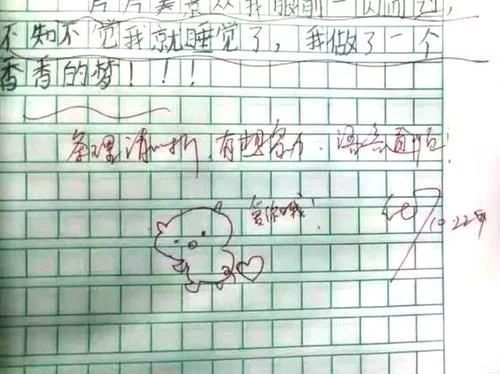 片片春意从我眼前一闪而过，
不知不觉我就睡觉了，我做了一个
香香的梦！！！
条理清晰，有想象力，语言通顺！
爱你哦！
优 10.22